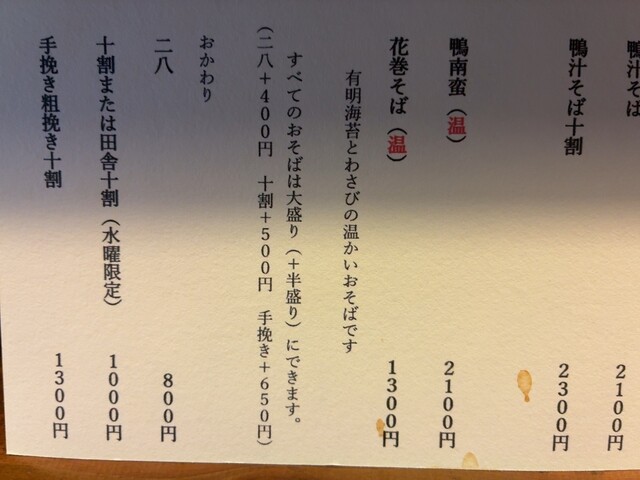 鴨汁そば
2100円
鴨汁そば十割
2300円
鴨南蛮（温）
2100円
花巻そば（温）
1300円
有明海苔とわさびの温かいおそばです
すべてのおそばは大盛り（＋半盛り）にできます。
（二八＋400円　十割＋500円　手挽き＋650円）
おかわり
二八
800円
十割または田舎十割（水曜限定）
1000円
手挽き粗挽き十割
1300円